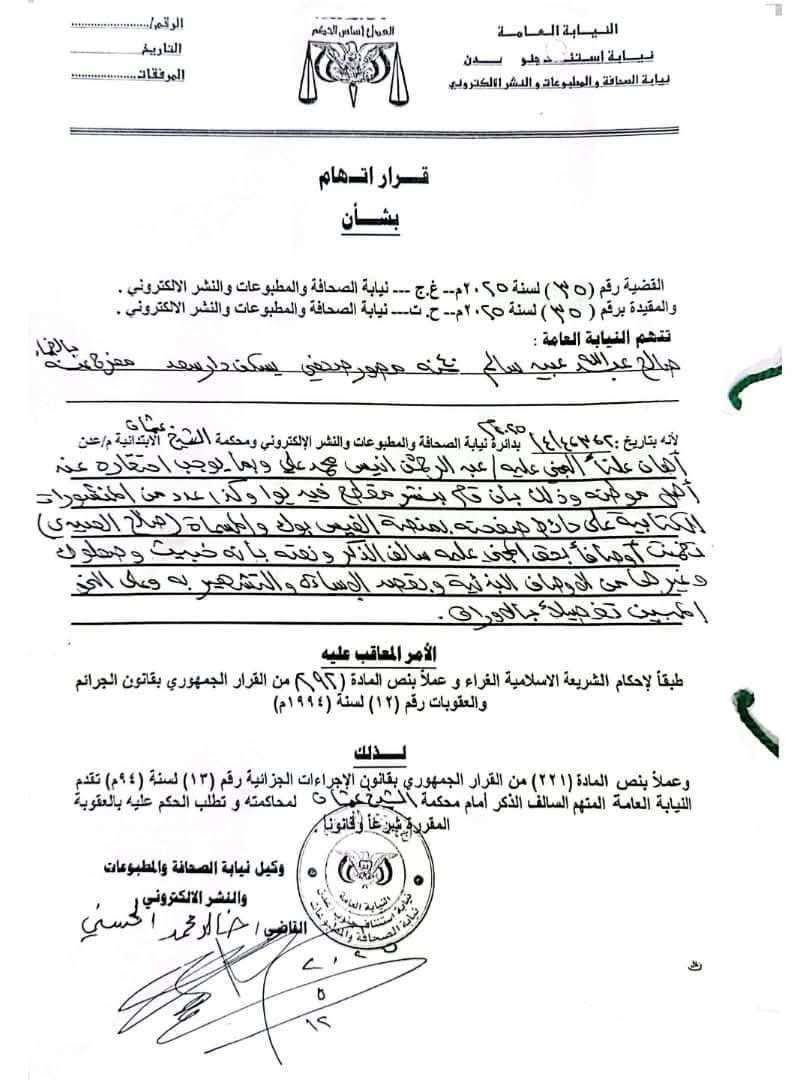 النيابة العامة
نيابة استئناف جنوب عدن
نيابة الصحافة والمطبوعات والنشر الالكتروني
العدل أساس الحكم
الرقم/
التاريخ
المرفقات
قرار اتهام
بشأن
القضية رقم (٣٥) لسنة ٢٠٢٥م-- غ.ج --- نيابة الصحافة والمطبوعات والنشر الالكتروني .
والمقيدة برقم (٣٥) لسنة ٢٠٢٥م-- ح.ت --- نيابة الصحافة والمطبوعات والنشر الالكتروني .
تتهم النيابة العامة :
صالح عبدالله عبيد سالم ٤٠ سنة مصور صحفي يسكن دار سعد مفرج عنه بالضمان
لأنه بتاريخ : بدائرة نيابة الصحافة والمطبوعات والنشر الإلكتروني ومحكمة الشيخ عثمان الابتدائية م/عدن
أهان علناً المجني عليه/ عبد الرحمن انيس محمد علي وبما يوجب احتقاره عند
أهل موطنه وذلك بأن قام بنشر مقطع فيديو وكذا عدد من المنشورات
الكتابية على حائط صفحته بمنصة الفيس بوك والمسماة (صالح العبيدي)
تضمنت أوصافاً بحق المجني عليه سالف الذكر ونعته بأنه خبيث وصعلوك
وغيرها من الاوصاف البذئية وبقصد الإساءة والتشهير به وعلى النحو
المبين تفصيلاً بالاوراق .
الأمر المعاقب عليه
طبقاً لإحكام الشريعة الاسلامية الغراء و عملاً بنص المادة (٢٩٢) من القرار الجمهوري بقانون الجرائم
والعقوبات رقم (١٢) لسنة (١٩٩٤م)
لذلك
وعملاً بنص المادة (٢٢١) من القرار الجمهوري بقانون الإجراءات الجزائية رقم (١٣) لسنة (٩٤م) تقدم
النيابة العامة المتهم السالف الذكر أمام محكمة الشيخ عثمان لمحاكمته و تطلب الحكم عليه بالعقوبة
المقررة شرعاً وقانوناً .
وكيل نيابة الصحافة والمطبوعات
والنشر الالكتروني
القاضي/ خالد محمد الحسني
النيابة العامة
نيابة استئناف جنوب عدن
نيابة الصحافة والمطبوعات
٢٠٢٥
٥
١٢